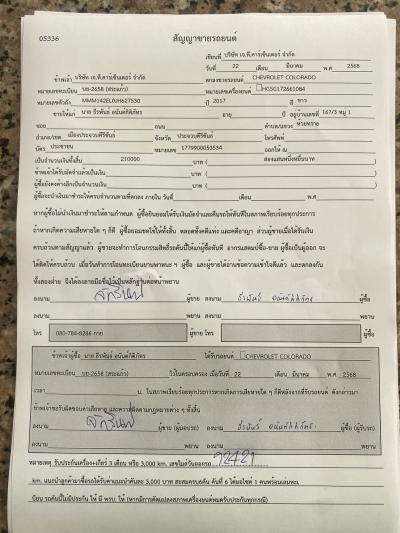 05336
สัญญาขายรถยนต์
เขียนที่ บริษัท เจ.ที.คาร์เซ็นเตอร์ จำกัด
วันที่ 22 เดือน มีนาคม พ.ศ 2568
ข้าพเจ้า บริษัท เจ.ที.คาร์เซ็นเตอร์ จำกัด ตกลงขายรถยนต์ CHEVROLET COLORADO
หมายเลขทะเบียน บย-2658 (สระแก้ว) หมายเลขเครื่องยนต์
หมายเลขตัวถัง ปี 2017 สี ขาว
ขายให้แก่ นาย ธีรพันธ์ อนันต์กิติภัทร อายุ ปี อยู่บ้านเลขที่ 167/3 หมู่ 1
ซอย ถนน ตำบล/แขวง ห้วยทราย
อำเภอ/เขต เมืองประจวบคีรีขันธ์ จังหวัด ประจวบคีรีขันธ์ โทรศัพท์
บัตร ประชาชน หมายเลข 1779900053534 ออกให้ ณ
เป็นจำนวนเงินทั้งสิ้น 210000 บาท ( สองแสนหนึ่งหมื่นบาท )
ข้าพเจ้าได้รับมัดจำแล้วเป็นเงิน บาท ( )
ผู้ซื้อยังคงค้างอีกเป็นจำนวนเงิน บาท ( )
ผู้ซื้อจะนำเงินมาชำระให้ครบจำนวนตามที่ตกลง ภายใน วันที่ เดือน พ.ศ
หากผู้ซื้อไม่นำเงินมาชำระตามกำหนด ผู้ซื้อยินยอมให้ริบเงินมัดจำและคืนรถให้ทันทีในสภาพเรียบร้อยทุกประการ
ถ้าหากเกิดความเสียหายใด ๆ ก็ดี ผู้ซื้อยอมชดใช้ให้ทั้งสิ้น ตลอดทั้งคดีแพ่ง และคดีอาญา ส่วนผู้ขายเมื่อได้รับเงิน
ครบถ้วนตามสัญญาแล้ว ผู้ขายจะทำการโอนกรรมสิทธิ์รถคันนี้ให้แก่ผู้ซื้อทันที จากแสดมป์ซื้อ-ขาย ผู้ซื้อเป็นผู้ออก จะ
ได้ติดให้ครบถ้วน เมื่อวันทำการโอนทะเบียนยานพาหนะ ฯ ผู้ซื้อ และผู้ขายได้อ่านข้อความเข้าใจดีแล้ว และตกลงกัน
ทั้งสองฝ่าย จึงได้ลงลายมือชื่อไว้เป็นหลักฐานต่อหน้าพยาน
ลงนาม ผู้ขาย ลงนาม ธีรพันธ์ อนันต์กิติภัทร ผู้ซื้อ
ลงนาม พยาน ลงนาม พยาน
โทร 080-784-8286 กาย ผู้ขาย โทร ผู้ซื้อ
ข้าพเจ้าผู้ซื้อ นาย ธีรพันธ์ อนันต์กิติภัทร ได้รับรถยนต์ CHEVROLET COLORADO
หมายเลขทะเบียน บย-2658 (สระแก้ว) ไว้ในครอบครอง เมื่อวันที่ 22 เดือน มีนาคม พ.ศ 2568
เวลา น. ในสภาพเรียบร้อยทุกประการหากเกิดการเสียหายใด ๆ ก็ดีหลังจากที่รับรถยนต์ ดังกล่าวมา
ข้าพเจ้าขอรับผิดชอบค่าเสียหาย และความผิดตามกฎหมายต่าง ๆ ทั้งสิ้น
ลงนาม ผู้ขาย (ผู้มอบรถ) ลงนาม ธีรพันธ์ อนันต์กิติภัทร ผู้ซื้อ (ผู้รับรถ)
ลงนาม พยาน ลงนาม พยาน
หมายเหตุ รับประกันเครื่อง+เกียร์ 3 เดือน หรือ 3,000 km. เลขไมล์วันออกรถ 92421
km. แนะนำลูกค้ามาซื้อรถได้รับค่าแนะนำคันละ 3,000 บาท สะสมครบ6คัน คันที่ 6 ได้มอไซค์ 1 คันพร้อมเล่มทะเบียน
รถคันนี้ไม่มีประกัน ให้ มี พรบ. ให้ (หากมีการดัดแปลงสภาพเครื่องยนต์หมดรับประกันทุกกรณี)